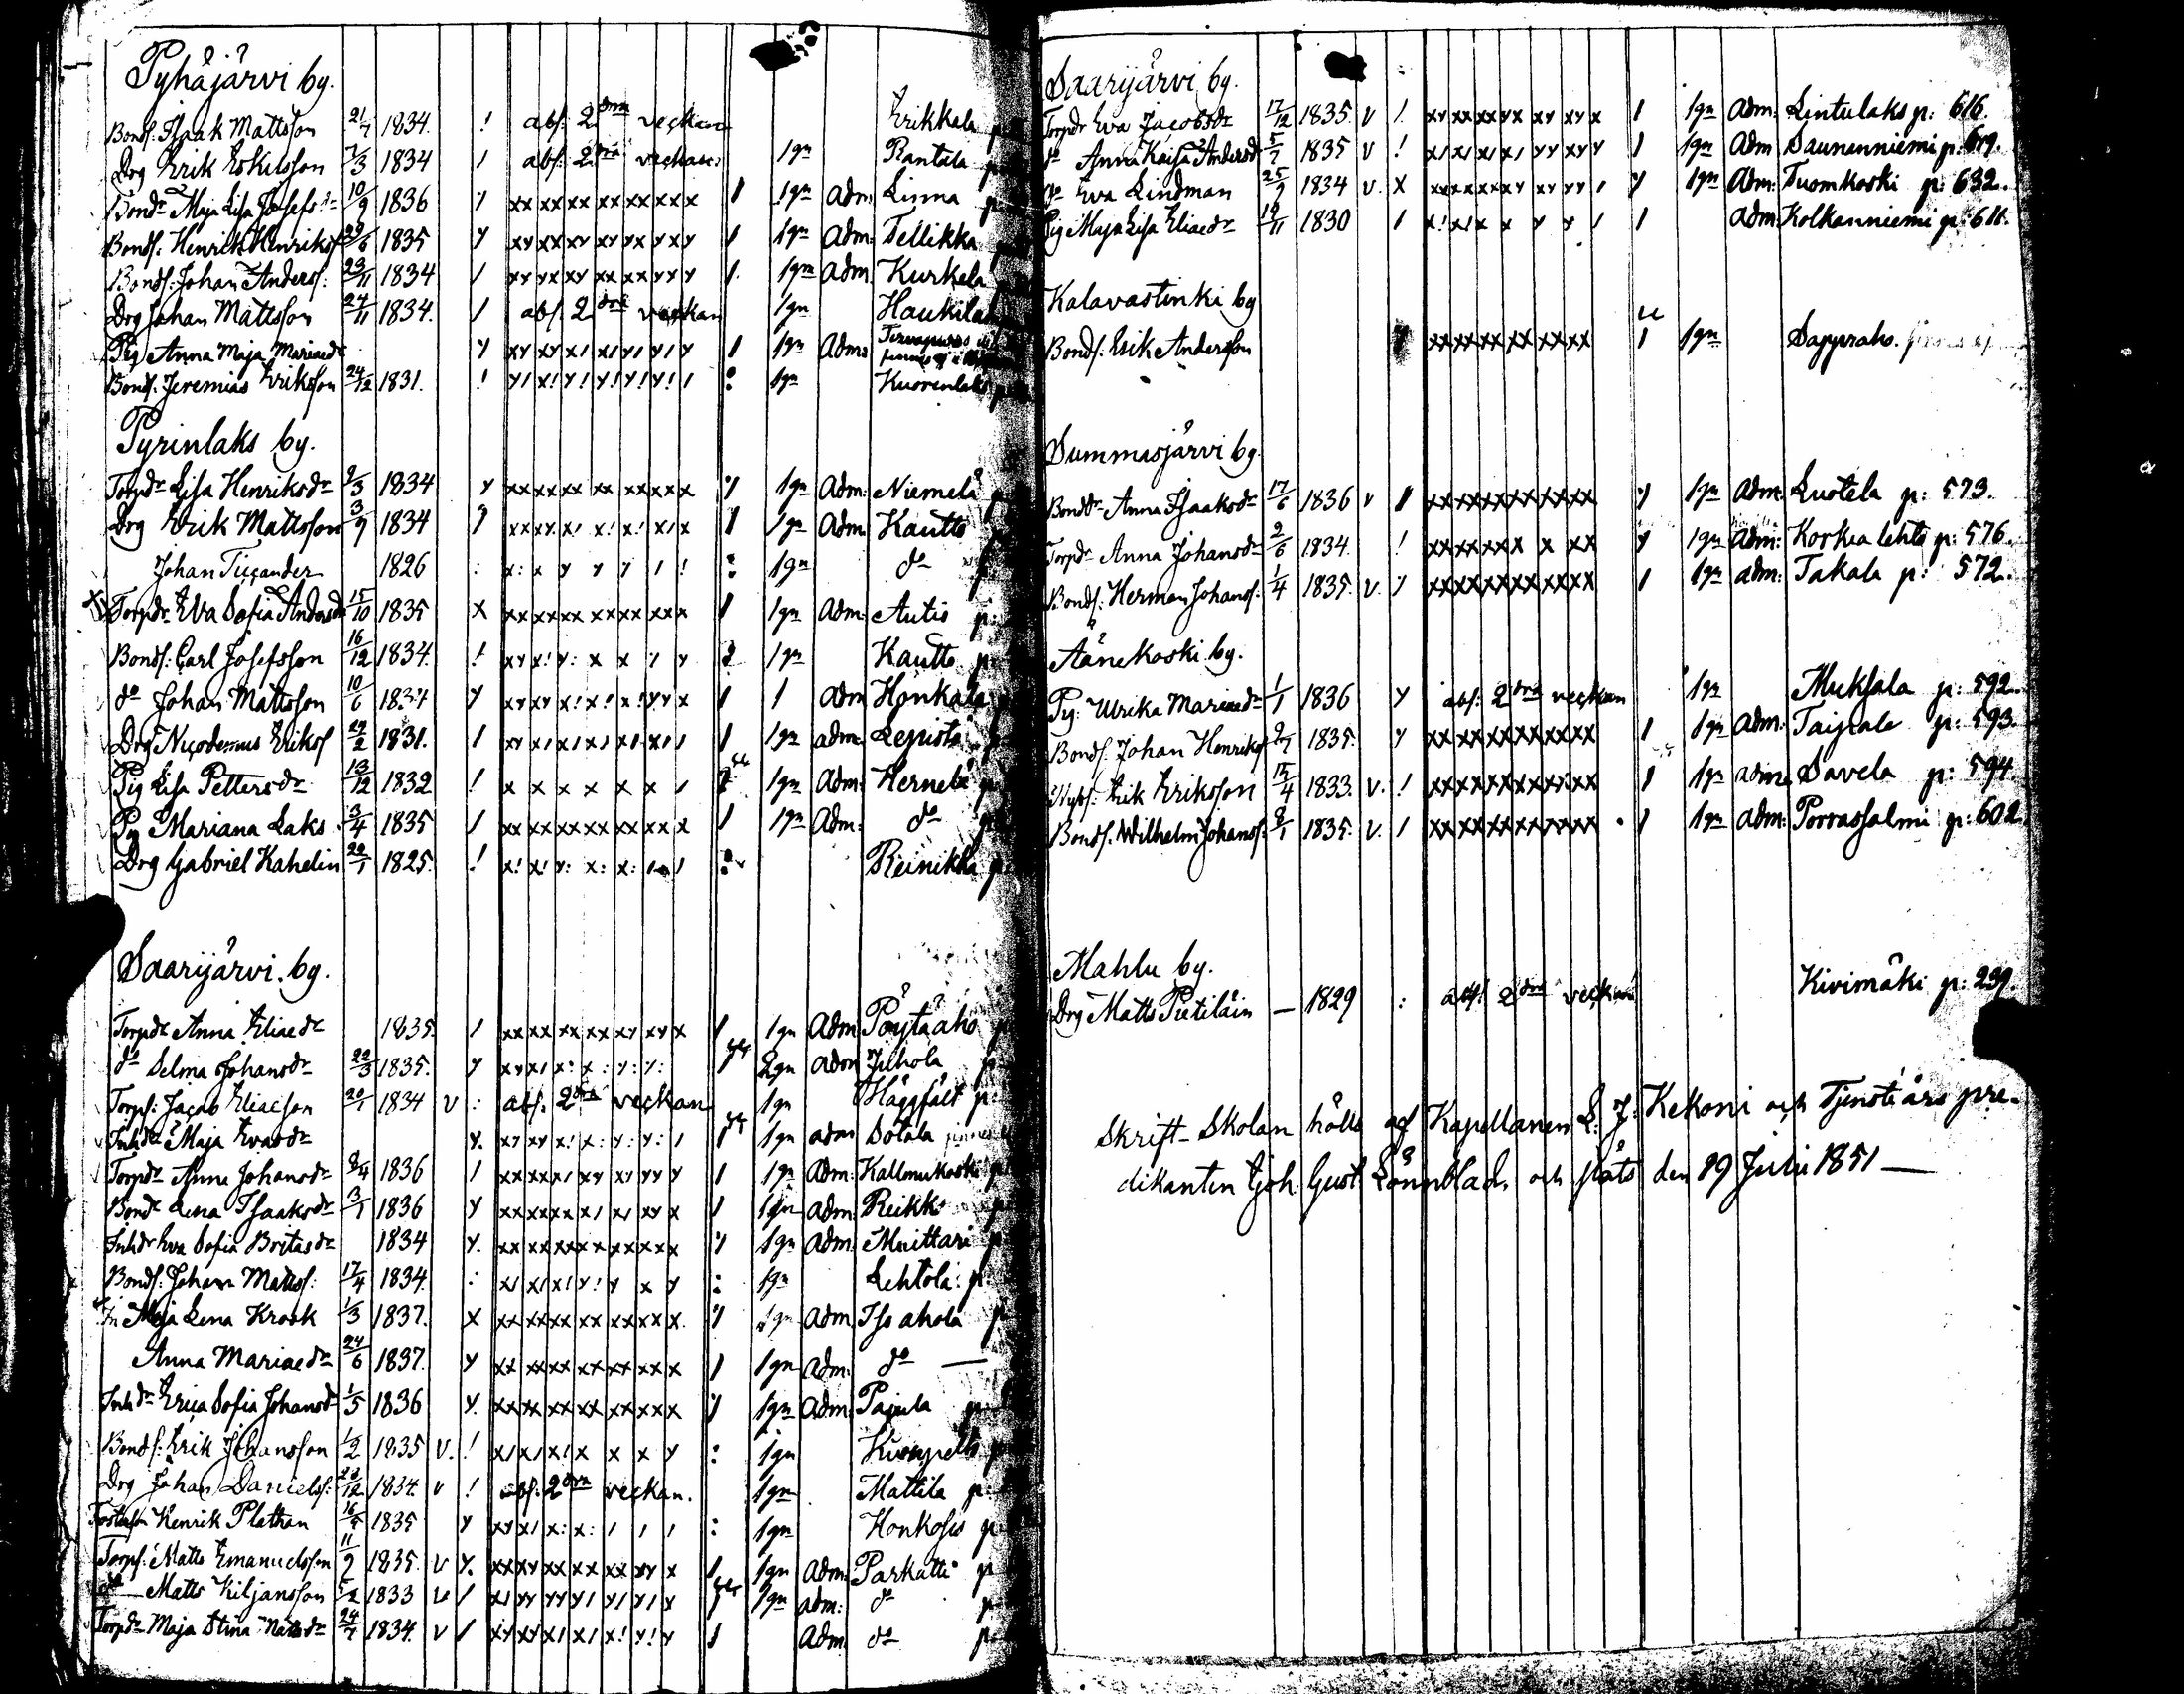 Pyhäjärvi by.
Bonds. Isaak Mattsson 21/7 1834. ! abs. 2dra veckan Erikkala p
Drg Erik Eskilsson 7/3 1834 / abs. 2dra veckan. 1gn Rantala p
Bondr Maja Lisa Josefsdr 10/9 1836 y xx xx xx xx xx x x / 1gn adm. Linna p
Bonds. Henrik Henrikss 29/6 1835 y xy xx xy xy yx y xy / 1gn Adm. Tellikka
Bonds. Johan Anderss: 23/11 1834 / xy yx xy xx xx yy y /. 1gn Adm. Kurkela
Drg Johan Mattsson 24/11 1834. / abs. 2dra veckan 1gn Haukilah
Pig Anna Maja Mariaedr y xy xy x/ x/ y/ y/ y / 1gn Adm.
Bonds. Jeremias Eriksson 24/12 1831. ! y/ x! y! y! y! y! / : 1gn Kuorenlaks
Pyrinlaks by.
Torpdr Lisa Henriksdr 9/3 1834 y xx xx xx xx xx xx x y 1gn Adm: Niemelä p
Drg Erik Mattsson 3/9 1834 y xx xy x/ x! x! x/ x / 1gn Adm. Kautto p
Johan Ticander 1826 : x: x y y y / ! : 1gn do
Torpdr Eva Sofia Andersdr 15/10 1835 X xx xx xx xx xx xx x / 1gn Adm: Autio p:
Bonds: Carl Josefsson 16/12 1834. ! xy x! y: x x y y 1gn Kautto p:
do Johan Mattsson 10/6 1834 y xy xy x! x! x! yy x / 1 adm Honkala
Drg Nicodemus Erikss 29/2 1831. / xy x/ x/ x/ x/ x/ / / 1gn adm. Lepistö
Pig Lisa Pettersdr 13/12 1832 ! x x x x x x / 1gn Adm: Hernelä p
Pig Mariana Laks 3/4 1835 / xx xx xx xx xx xx x / 1gn Adm: do p
Drg Gabriel Kahelin 22/1 1825. ! x! x! y: x: x: / / : Reinikka p
Saarijärvi. by.
Torpdr Anna Eliaedr 1835. / xx xx xx xx xy xy x / 1gn Adm Pöytäaho p
do Selma Johansdr 22/3 1835. y xy x/ x: x: y: y: 2gn adm Jlhola p
Torps: Jacob Eliaeson 20/1 1834 v : abs. 2dra veckan 1gn Häggfält p:
Inhdr Maja Evasdr y. xy xy x! x: y: y: / 1gn adm Sotala
Torpdr Anna Johansdr 8/4 1836 / xx xx x/ xy x/ yy y / 1gn Adm: Kallmukoski p
Bondr Lena Isaaksdr 3/1 1836 y xx xx xx x/ x/ xy x / 1gn adm Reikko p
Inhdr Eva Sofia Britasdr 1834 y. xx xx xx xx xx xx x y 1gn Adm. Muittari p
Bonds: Johan Matss: 17/4 1834. : x/ x/ x! y! y x y : 1gn Lehtola: p:
Maja Lena Krook 1/3 1837. X xx xx xx xx xx xx x. y 1gn Adm Iso ahola p
Anna Mariaedr 24/6 1837. y xx xx xx xx xx xx x / 1gn Adm: do —
Inhdr Erica Sofia Johansdr 1/5 1836 y. xx xx xx xx xx xx x y 1gn Adm: Pajula p
Bonds: Erik Johansson 1/2 1835 v. ! x/ x/ x! x x x y : 1gn p
Drg Johan Daniels: 28/12 1834. v ! abs. 2dra veckan. 1gn Mattila p:
Henrik Plathan 16/5 1835 y xy x/ x: x: / / / : 1gn Honkoses p
Torps: Matts Emanuelsson 11/9 1835. v y. xx xy xx xx xx xy x / 1gn adm: Parkatti p
do Matts Kiljansson 1833 v / x/ yy yy y/ y/ y/ x 1gn adm: do p
Torpdr Maja Stina Mattsdr 24/7 1834. v / xy xy x/ x/ x! y! y / Adm do p
Saarijärvi by.
Torpdr Eva Jacobsdr 17/12 1835. v !. xy xx xx yx xy xy x / 1gn adm: Lintulaks p: 616.
do Anna Kaisa Andersdr 5/7 1835 v ! x/ x/ x/ x/ yy xy y / 1gn adm Saunenniemi p: 609.
do Eva Lindman 25/9 1834 v. X xx xx xx xy xy yy / y 1gn Adm: Tuomkoski p: 632.
Pig Maja Lisa Eliaedr 19/11 1830 / x! x/ x x y y / / adm: Kolkanniemi p: 611.
Kalavastinki by
Bonds. Erik Andersson y xx xx xx xx xx xx / 1gn
Summasjärvi by.
Bonddr Anna Isaaksdr 17/6 1836 v / xx xx xx xx xx xx x y 1gn adm. Luotela p: 573.
Torpdr Anna Johansdr 2/6 1834. ! xx xx xx x x xx y 1gn adm: Korkea lehto p: 576
Bonds: Herman Johans. 1/4 1835. v. y xx xx xx xx xx xx x / 1gn adm: Takala p: 572.
Äänekoski. by.
Pig: Ulrika Mariaedr 1/1 1836 y abs. 2dra veckan 1gn Muksala p: 592.
Bonds. Johan Henrikss 2/7 1835. y xx xx xx xx xx xx x / 1gn adm: Taipale p: 593.
Erik Eriksson 15/4 1833. v. ! xx xx xx xx xx xx x / 1gn adm. Savela p: 594.
Bonds. Wilhelm Johanss. 8/1 1835. v. / xx xx xx xx xx xx x / 1gn adm: Porrassalmi p: 602.
Mahlu by.
Drg Matts Pietiläin — 1829 : abs. 2dra veckan Kivimäki p: 239
Skrift-Skolan hölls af Kapellanen L. J. Kekoni och Tjenstårs pre-
dikanten Joh. Gust. Lönnblad, och slöts den 19 Julii 1851 —